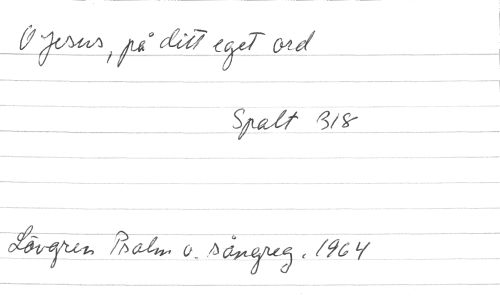 O Jesus, på ditt eget ord
Spalt 318
Lövgren Psalm o. sångreg. 1964